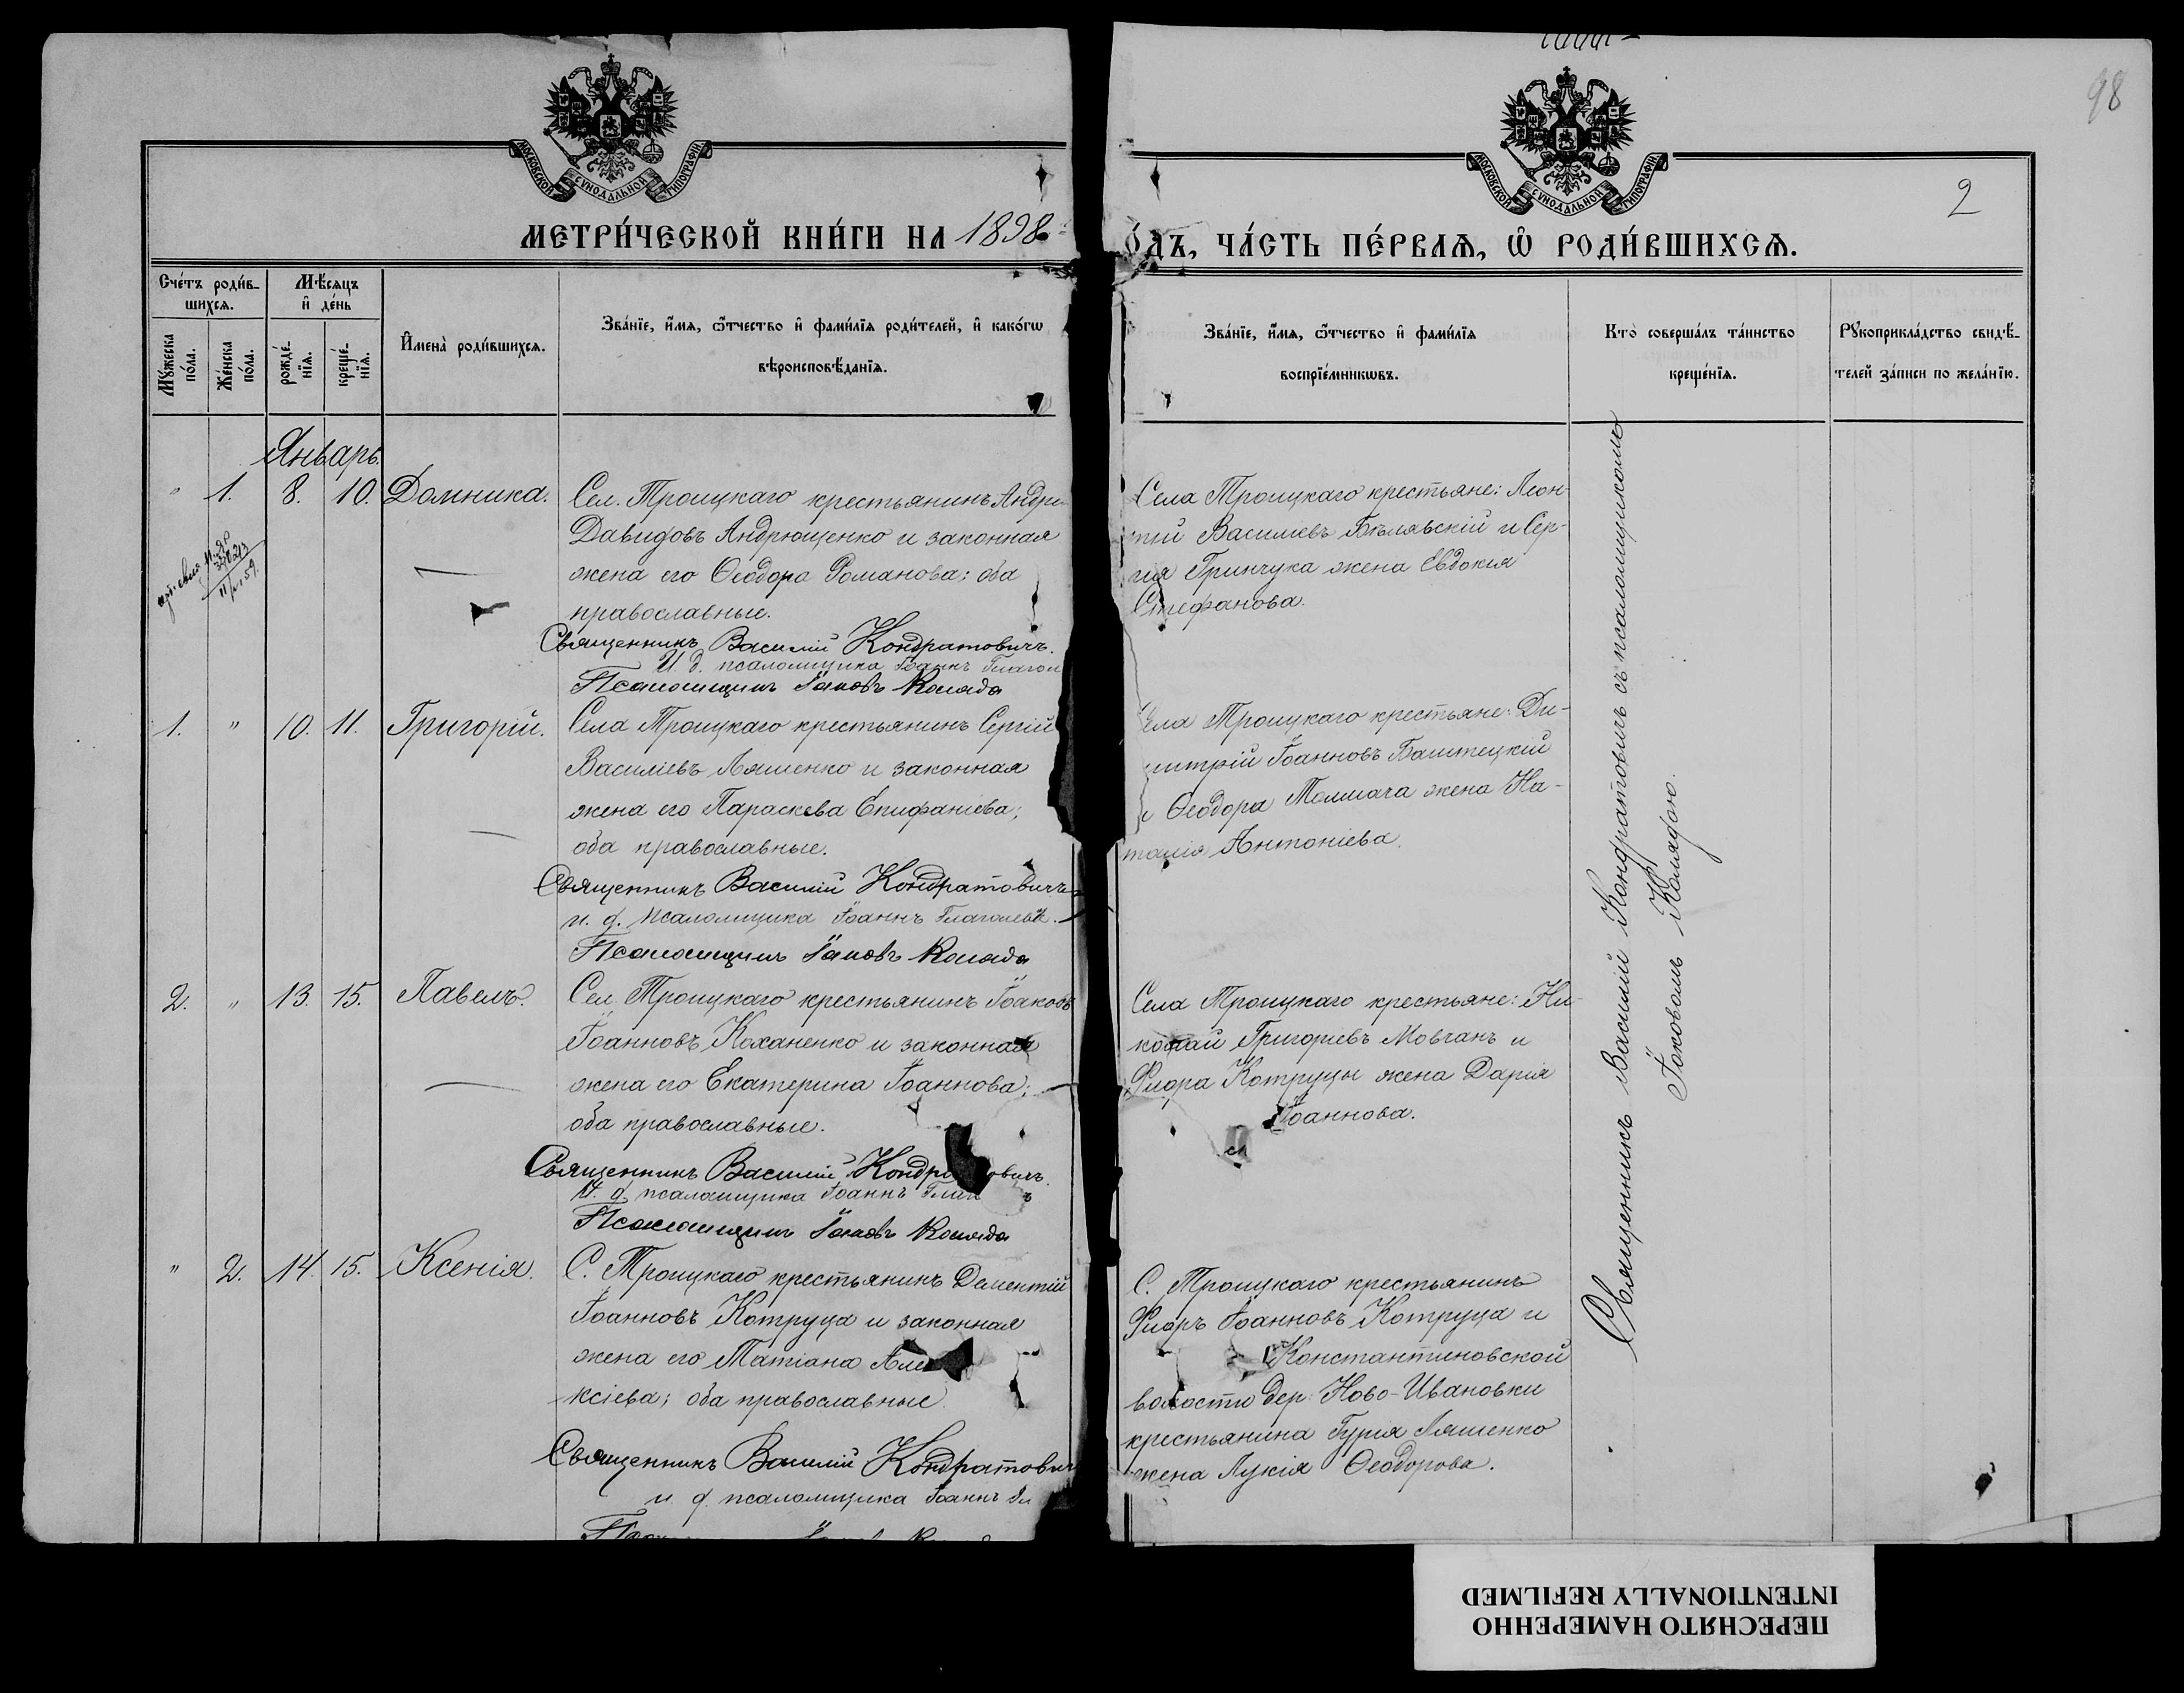 98
2
МОСКОВСКОЙ СѴНОДАЛЬНОЙ ТИПОГРАФІИ
МОСКОВСКОЙ СѴНОДАЛЬНОЙ ТИПОГРАФІИ
МЕТРИ́ЧЕСКОЙ КНИ́ГИ НА 1898
О́ДЪ, ЧА́СТЬ ПЕ́РВАѦ, Ѿ РОДИ́ВШИХСѦ.
Сче́тъ роди́в-
шихсѧ.
Мѣ́сяцъ
и҆ де́нь
Мꙋ́жеска
по́ла.
Же́нска
по́ла.
рожде́-
нїѧ.
креще́-
нїѧ.
И҆мена̀ роди́вшихсѧ.
Зва́нїе, и҆́мѧ, ѻ҆́тчество и҆ фами́лїѧ роди́телей, и҆ како́гѡ
вѣроисповѣ́данїѧ.
Зва́нїе, и҆́мѧ, ѻ҆́тчество и҆ фами́лїѧ
воспрїе́мникѡвъ.
Кто̀ соверша́лъ та́инство
креще́нїѧ.
Рꙋкоприкла́дство свидѣ́-
телей за́писи по жела́нїю.
Январь.
" 1. 8. 10. Домника.
Сел. Троицкаго крестьянинъ Андре
Давидовъ Андрющенко и законная
жена его Ѳеодора Романова; оба
православные.
Священникъ Василій Кондратовичъ.
И. д. псаломщика Іоаннъ Глагол
Псаломщикъ Іаковъ Коляда
Села Троицкаго крестьяне: Леон-
тій Василіевъ Бѣлявскій и Сер-
гія Гринчука жена Евдокія
Стефанова.
1. " 10. 11. Григорій.
Села Троицкаго крестьянинъ Сергій
Василіевъ Ляшенко и законная
жена его Параскева Епифаніева;
оба православные.
Священникъ Василій Кондратовичъ
и. д. псаломщика Іоаннъ Глаголевъ.
Псаломщикъ Іаковъ Коляда
ела Троицкаго крестьяне: Ди-
митрій Іоанновъ Баштецкій
и Ѳеодора Толмача жена На-
талія Антоніева.
2. " 13. 15. Павелъ.
Сел Троицкаго крестьянинъ Іаковъ
Іоанновъ Коханенко и законная
жена его Екатерина Іоаннова;
оба православные.
Священникъ Василій Кондр овичъ.
И. д. псаломщика Іоаннъ
Псаломщикъ Іаковъ Коляда
Села Троицкаго крестьяне: Ни-
колай Григоріевъ Мовчанъ и
Флора Котруцы жена Дарія
Іоаннова.
" 2. 14. 15. Ксенія.
С. Троицкаго крестьянинъ Дементій
Іоанновъ Котруца и законная
жена его Татіана Але
ксіева; оба православные
Священникъ Василій Кондратович
и. д. псаломщика Іоаннъ Гл
С. Троицкаго крестьянинъ
Флоръ Іоанновъ Котруца и
Константиновской
волости дер. Ново-Ивановки
крестьянина Гурія Ляшенко
жена Лукія Ѳеодорова.
Священникъ Василій Кондратовичъ съ псаломщикомъ
Іаковомъ Колядою.
ПЕРЕСНЯТО НАМЕРЕННО
INTENTIONALLY REFILMED